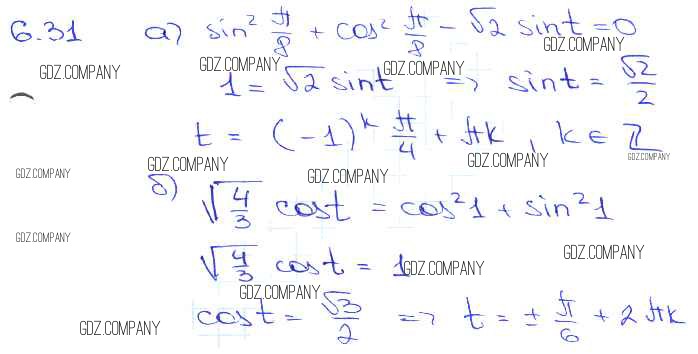 6.31 а) sin² π/8 + cos² π/8 - √2 sint = 0
GDZ.COMPANY
GDZ.COMPANY GDZ.COMPANY GDZ.COMPANY
1 = √2 sint => sint = √2/2
t = (-1)^k π/4 + πk, k ∈ ℤ
GDZ.COMPANY GDZ.COMPANY GDZ.COMPANY
GDZ.COMPANY GDZ.COMPANY
б) √(4/3) cost = cos²1 + sin²1
GDZ.COMPANY
√(4/3) cost = 1
GDZ.COMPANY GDZ.COMPANY
GDZ.COMPANY
cost = √3/2 => t = ± π/6 + 2πk
GDZ.COMPANY